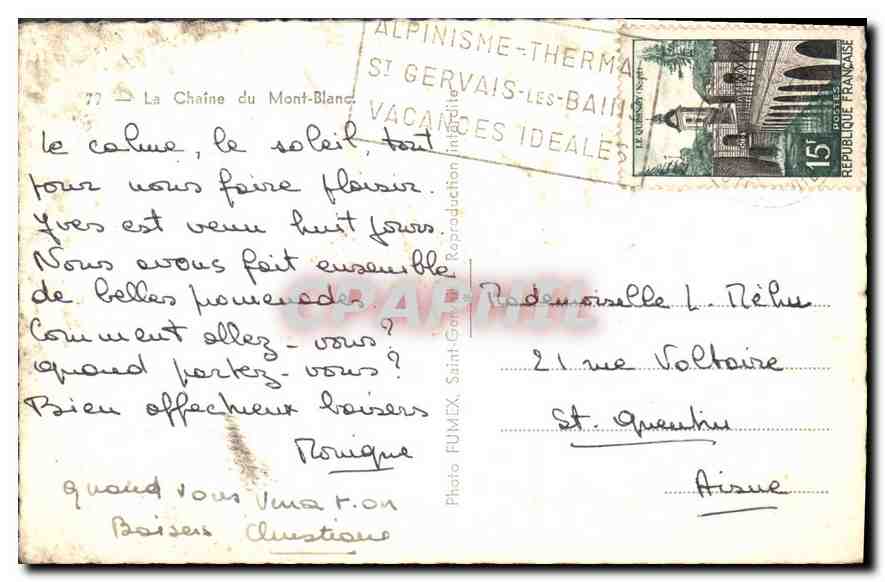 ALPINISME-THERMA
ST GERVAIS-LES-BAINS
VACANCES IDEALES
LE QUESNOY (Nord)
15F
POSTES
REPUBLIQUE FRANÇAISE
77 - La Chaîne du Mont-Blanc.
Le calme, le soleil, tout
pour nous faire plaisir.
Yves est venu huit jours.
Nous avons fait ensemble
de belles promenades.
Comment allez-vous?
quand partez-vous?
Bien affectueux baisers
Monique
quand vous verra t-on
Baisers Christiane
Photo FUMEX, Saint-Gervais Reproduction interdite
CPAPHIL
Mademoiselle L. Méhu
21 rue Voltaire
St. Quentin
Aisne